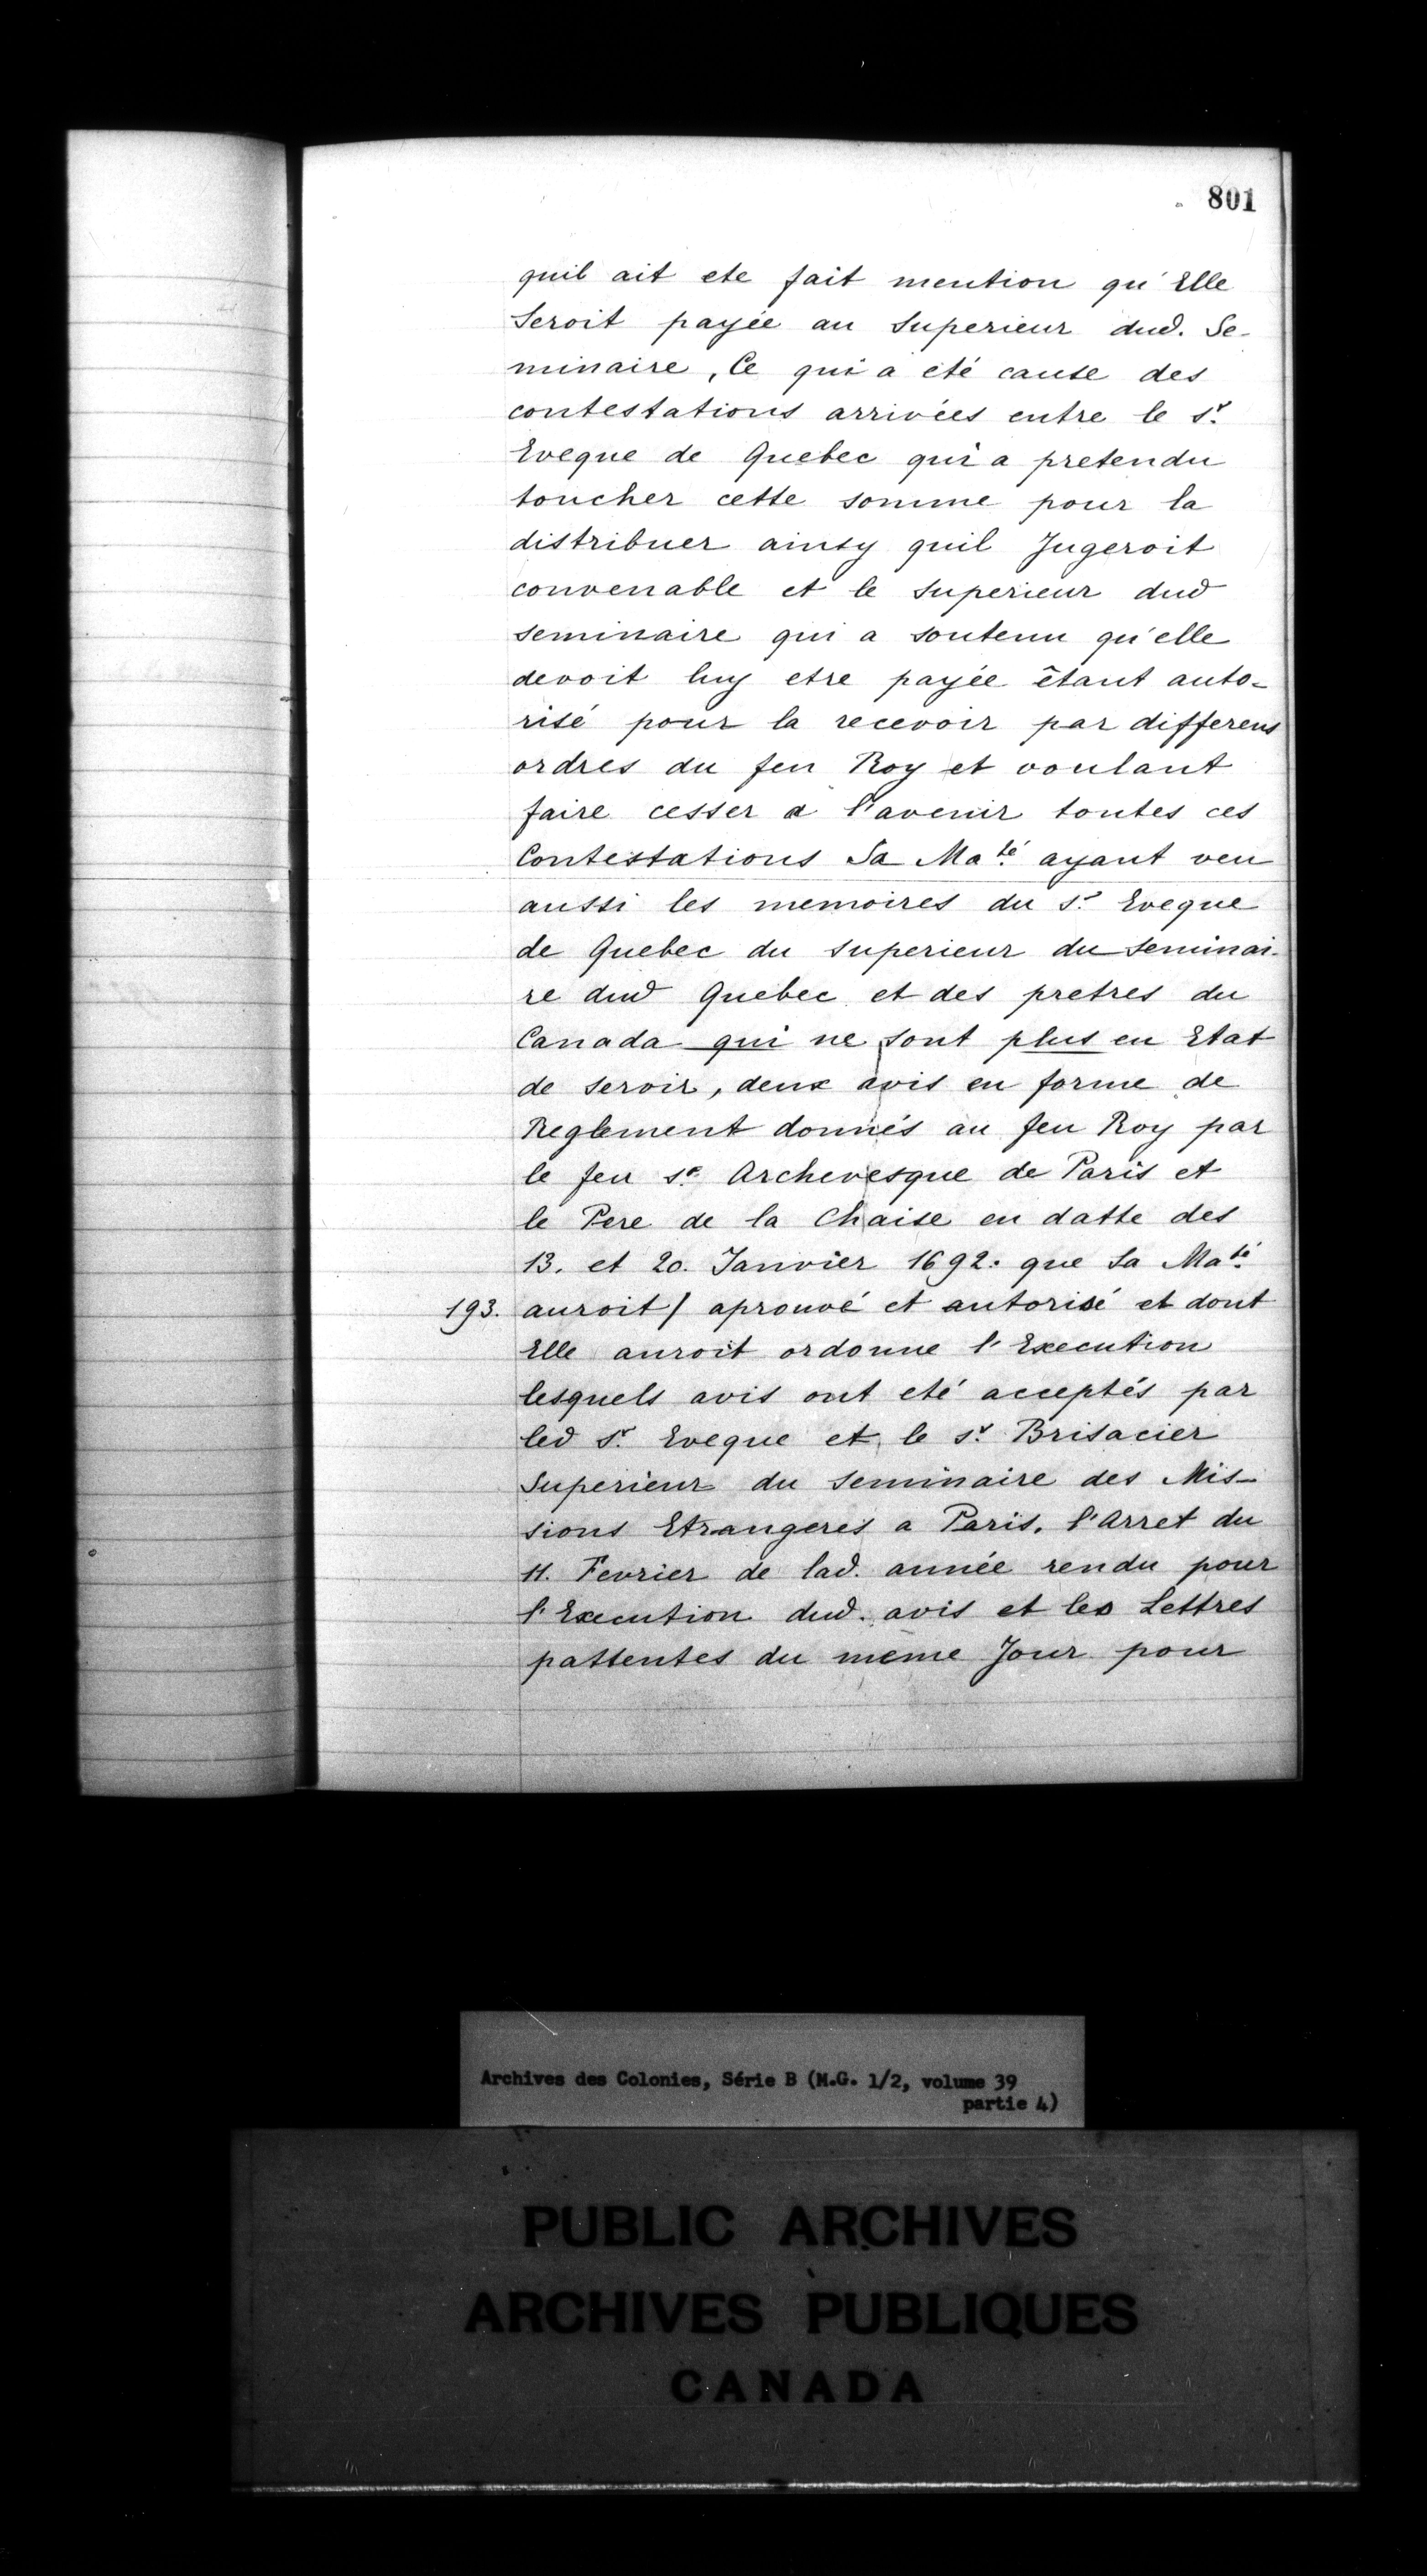 801
quil ait ete fait mention qu'Elle
Seroit payée au Superieur dud. Se-
minaire, Ce qui a eté cause des
contestations arrivées entre le Sr.
Eveque de Quebec qui a pretendu
toucher cette somme pour la
distribuer ainsy quil Jugeroit
convenable et le Superieur dud
seminaire qui a soutenu qu'elle
devoit luy etre payée étant auto-
risé pour la recevoir par differens
ordres du feu Roy et voulant
faire cesser a l'avenir toutes ces
Contestations Sa Maté. ayant veu
aussi les memoires du Sr. Eveque
de Quebec du Superieur du Seminai-
re dud Quebec et des pretres du
Canada qui ne sont plus en Etat
de servir, deux avis en forme de
Reglement donnés au feu Roy par
le feu Sr. Archevesque de Paris et
le Pere de la Chaise en datte des
13. et 20. Janvier 1692. que Sa Maté.
193. auroit / aprouvé et autorisé et dont
Elle auroit ordonne l'Execution
lesquels avis ont eté acceptés par
led Sr. Eveque et le Sr. Brisacier
Superieur du Seminaire des Mis-
sions Etrangeres a Paris. l'Arret du
11. Fevrier de lad. année rendu pour
l'Execution dud. avis et les Lettres
pattentes du meme Jour pour
Archives des Colonies, Série B (M.G. 1/2, volume 39
partie 4)
PUBLIC ARCHIVES
ARCHIVES PUBLIQUES
CANADA